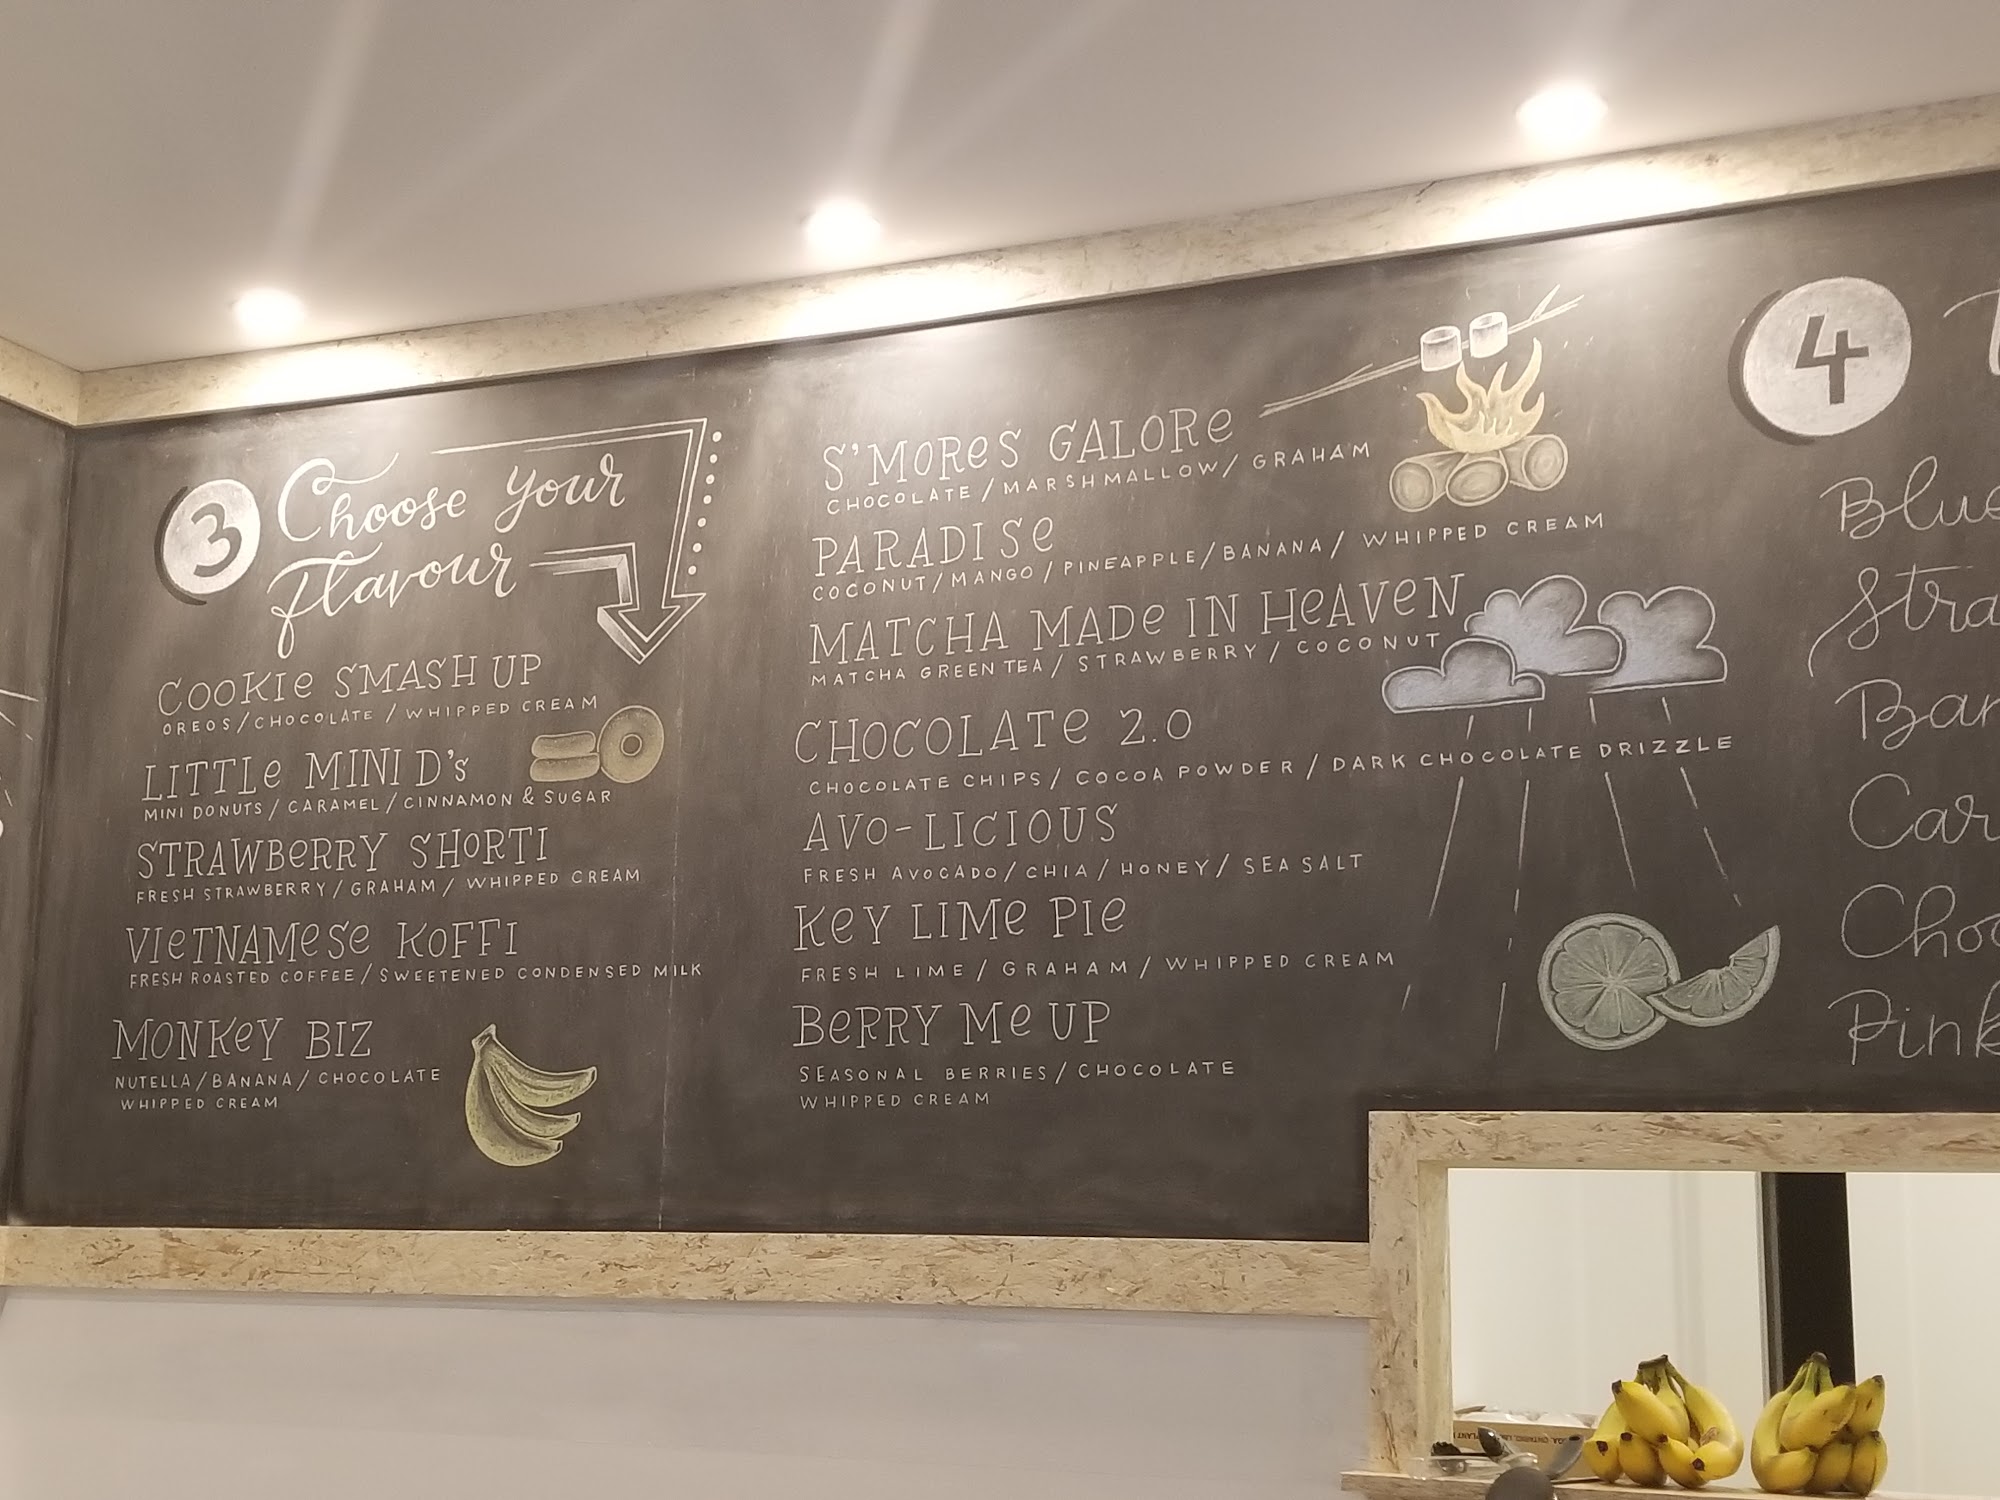 3
Choose your
flavour
COOKIE SMASH UP
OREOS/CHOCOLATE/WHIPPED CREAM
LITTLE MINI D's
MINI DONUTS/CARAMEL/CINNAMON & SUGAR
STRAWBERRY SHORTI
FRESH STRAWBERRY/GRAHAM/WHIPPED CREAM
VIETNAMESE KOFFI
FRESH ROASTED COFFEE/SWEETENED CONDENSED MILK
MONKEY BIZ
NUTELLA/BANANA/CHOCOLATE
WHIPPED CREAM
S'MORES GALORE
CHOCOLATE/MARSHMALLOW/GRAHAM
PARADISE
COCONUT/MANGO/PINEAPPLE/BANANA/WHIPPED CREAM
MATCHA MADE IN HEAVEN
MATCHA GREEN TEA/STRAWBERRY/COCONUT
CHOCOLATE 2.0
CHOCOLATE CHIPS/COCOA POWDER/DARK CHOCOLATE DRIZZLE
AVO-LICIOUS
FRESH AVOCADO/CHIA/HONEY/SEA SALT
KEY LIME PIE
FRESH LIME/GRAHAM/WHIPPED CREAM
BERRY ME UP
SEASONAL BERRIES/CHOCOLATE
WHIPPED CREAM
4
Blue
Stra
Ban
Car
Choc
Pink